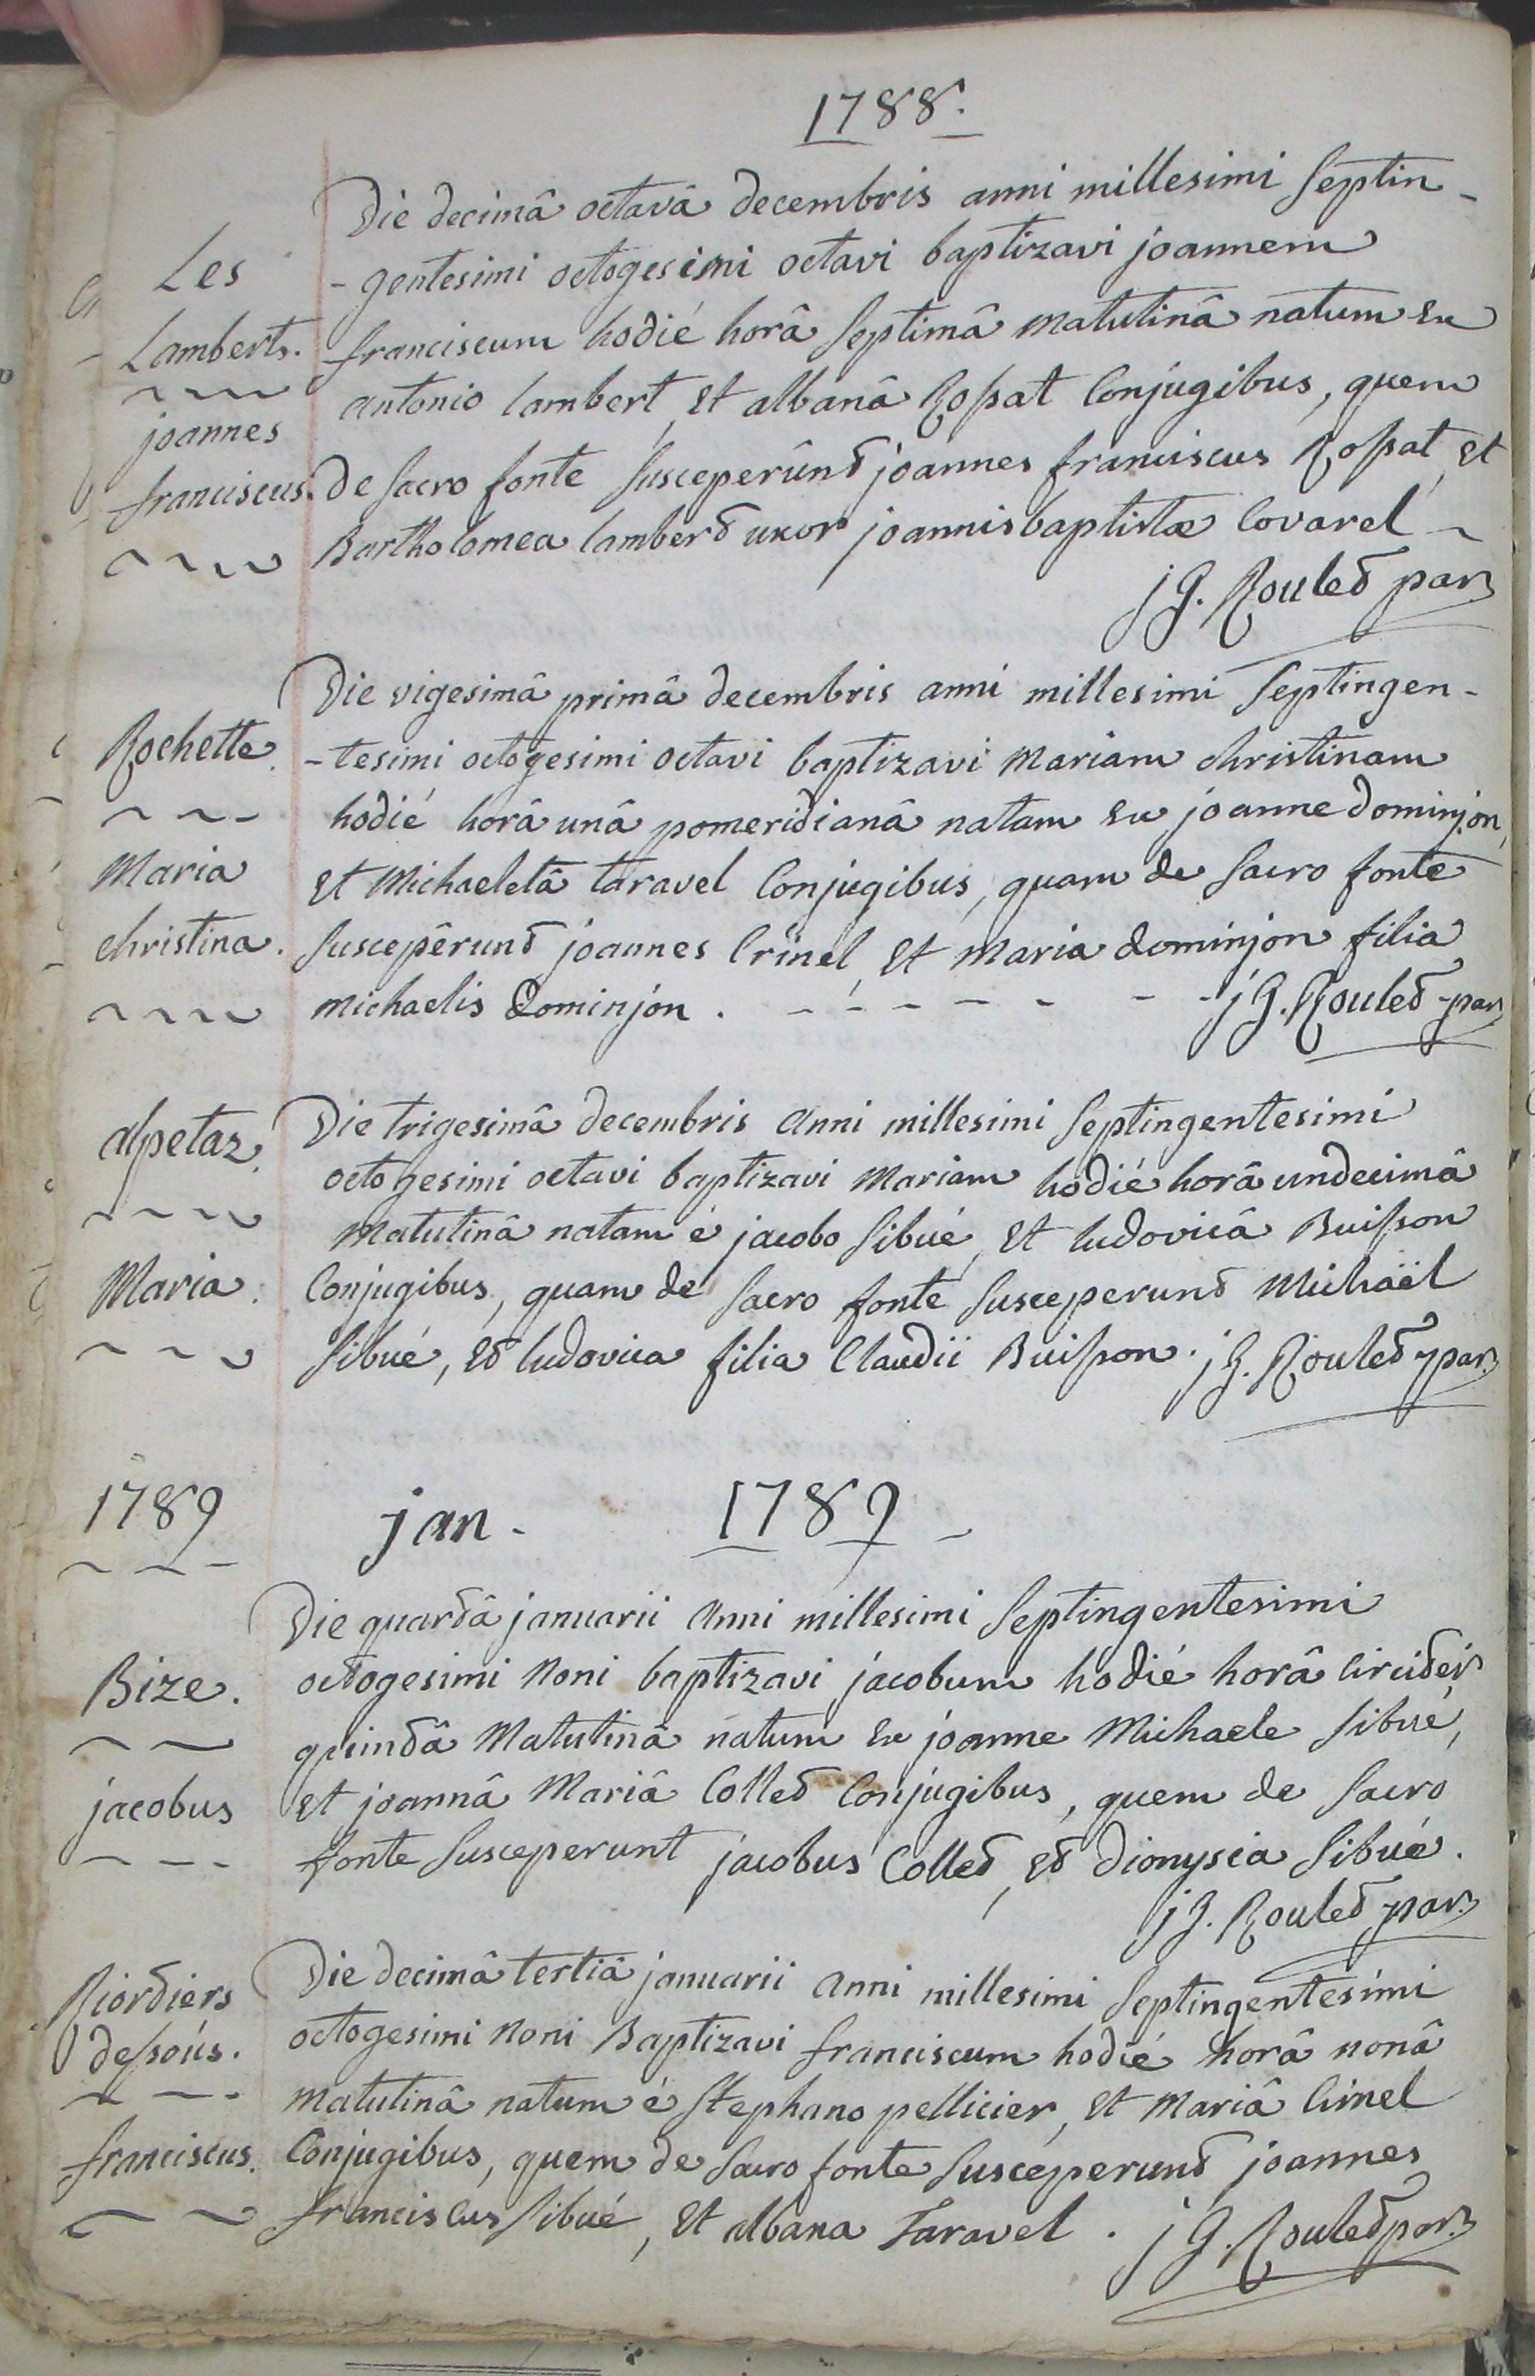 1788.
Les
Lamberts.
joannes
franciscus.
Die decimâ octavâ decembris anni millesimi septin-
-gentesimi octogesimi octavi baptizavi joannem
franciscum hodié horâ septimâ matutinâ natum ex
antonio lambert, et albanâ Rossat Conjugibus, quem
de sacro fonte susceperûnt joannes franciscus Rossat, et
Bartholomea lambert uxor joannisbaptistæ Covarel
jG. Roulet par.
Rochette.
Maria
christina.
Die vigesimâ primâ decembris anni millesimi septingen-
-tesimi octogesimi octavi baptizavi mariam christinam
hodié horâ unâ pomeridianâ natam ex joanne dominjon,
et Michaeletâ taravel Conjugibus, quam de sacro fonte
suscepêrunt joannes Crinel, et maria dominjon filia
michaelis dominjon. - - - - - - - jG. Roulet par.
alpetaz.
Maria.
Die trigesimâ decembris anni millesimi septingentesimi
octogesimi octavi baptizavi mariam hodié horâ undecimâ
matutinâ natam é jacobo sibué, et ludovicâ Buisson
Conjugibus, quam de sacro fonte susceperunt Michaël
sibué, et ludovica filia Claudii Buisson. jG. Roulet par.
1789
jan. 1789
Bize.
jacobus
Die quartâ januarii anni millesimi septingentesimi
octogesimi noni baptizavi jacobum hodié horâ circiter
quintâ matutinâ natum ex joanne Michaele sibué,
et joannâ Mariâ Collet Conjugibus, quem de sacro
fonte susceperunt jacobus Collet, et dionysia sibué.
jG. Roulet par.
Riortiers
dessoús.
franciscus.
Die decimâ tertiâ januarii anni millesimi septingentesimi
octogesimi noni Baptizavi franciscum hodié horâ nonâ
matutinâ natum é stephano pellicier, et mariâ Crinel
Conjugibus, quem de sacro fonte susceperunt joannes
franciscus sibué, et albana Taravel. jG. Roulet par.